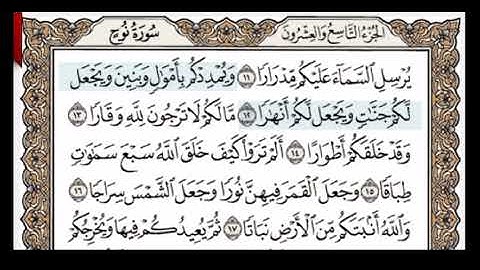 سُورَةُ نُوحٍ
الجُزْءُ التَّاسِعُ وَالعِشْرُونَ
يُرْسِلِ ٱلسَّمَآءَ عَلَيْكُم مِّدْرَارًا ١١ وَيُمْدِدْكُم بِأَمْوَٰلٍ وَبَنِينَ وَيَجْعَل
لَّكُمْ جَنَّٰتٍ وَيَجْعَل لَّكُمْ أَنْهَٰرًا ١٢ مَّا لَكُمْ لَا تَرْجُونَ لِلَّهِ وَقَارًا ١٣
وَقَدْ خَلَقَكُمْ أَطْوَارًا ١٤ أَلَمْ تَرَوْا۟ كَيْفَ خَلَقَ ٱللَّهُ سَبْعَ سَمَٰوَٰتٍ
طِبَاقًا ١٥ وَجَعَلَ ٱلْقَمَرَ فِيهِنَّ نُورًا وَجَعَلَ ٱلشَّمْسَ سِرَاجًا ١٦
وَٱللَّهُ أَنۢبَتَكُم مِّنَ ٱلْأَرْضِ نَبَاتًا ١٧ ثُمَّ يُعِيدُكُمْ فِيهَا وَيُخْرِجُكُمْ